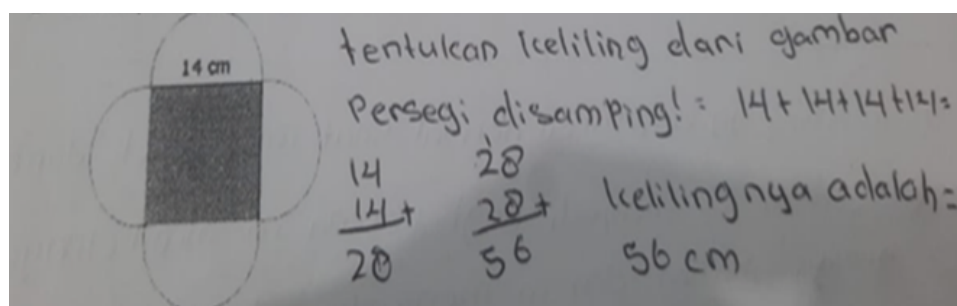 14 cm
tentukan keliling dari gambar
Persegi disamping! = 14 + 14 + 14 + 14 =
14 28
14 + 28 +
28 56
kelilingnya adalah =
56 cm